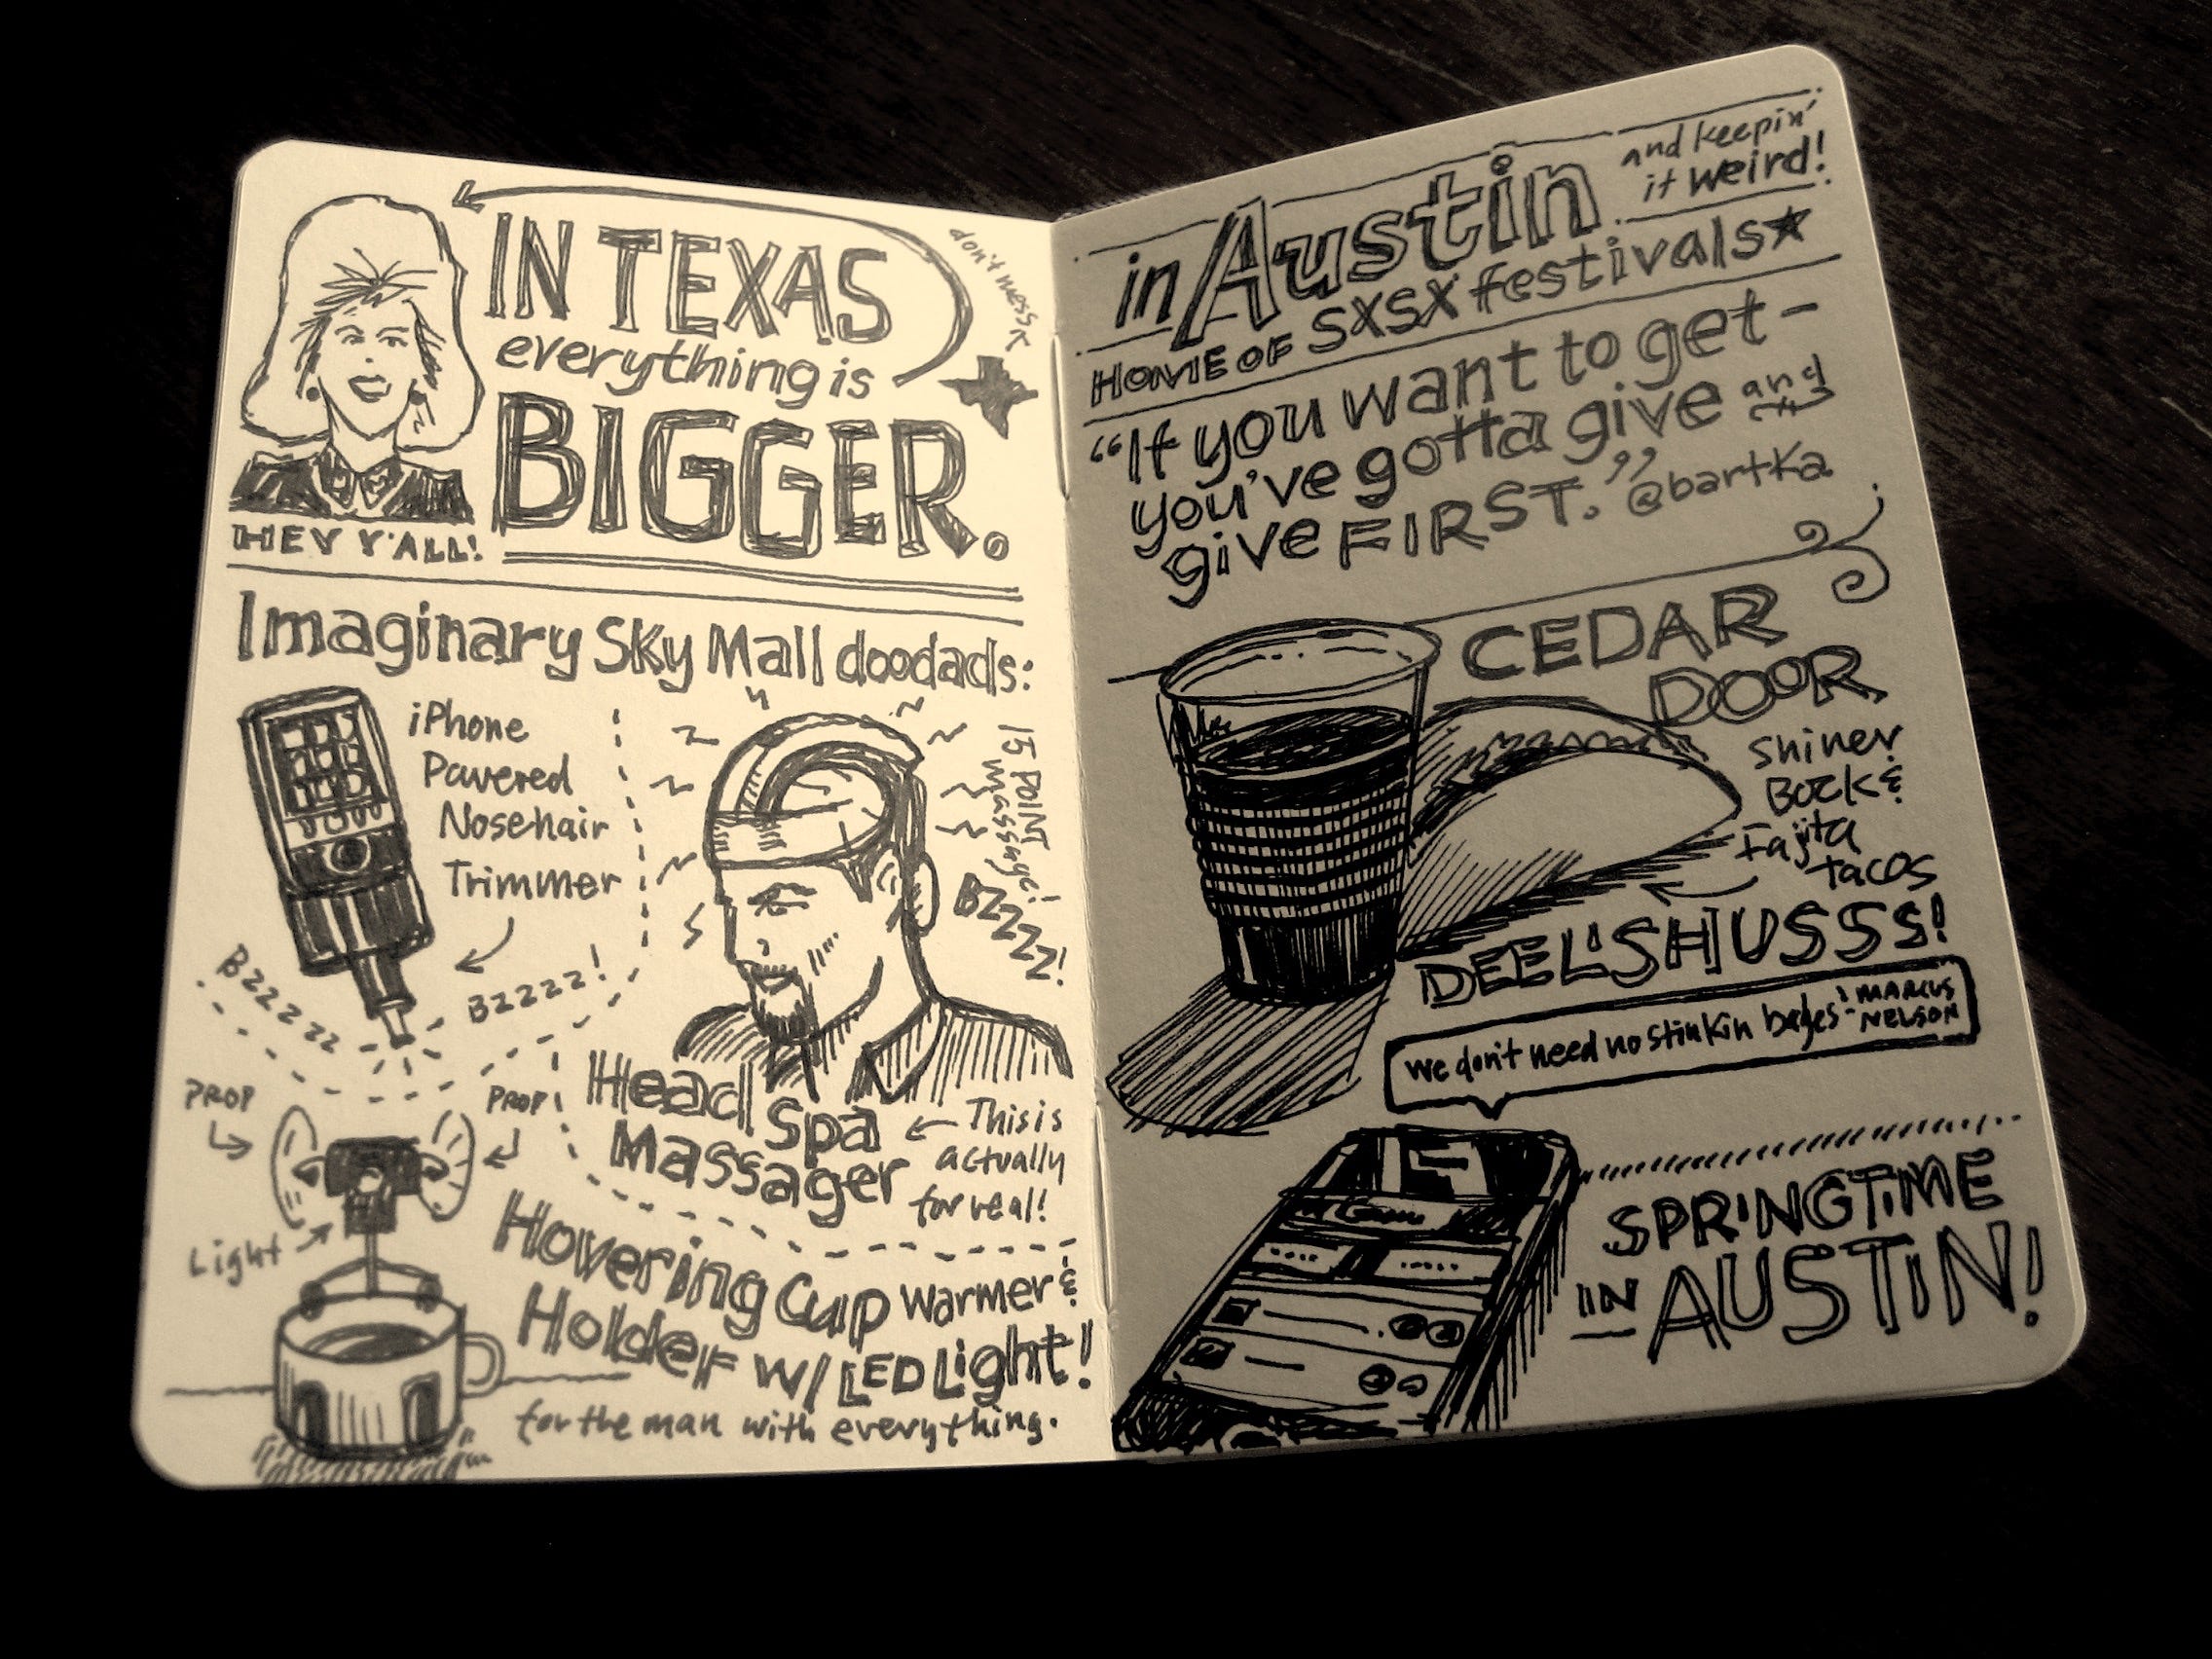 IN TEXAS
everything is
BIGGER.
don't mess
HEY Y'ALL!
Imaginary Sky Mall doodads:
iPhone
Powered
Nosehair
Trimmer
BZZZZZZ
BZZZZ!
15 POINT
massage!
BZZZZ!
Head Spa
Massager
This is
actually
for real!
PROP
PROP
Light
Hovering Cup Warmer &
Holder w/ LED Light!
for the man with everything.
in Austin
and keepin'
it weird!
HOME OF SXSX festivals
"If you want to get-
you've gotta give and
give FIRST." @bartka
CEDAR
DOOR
Shiner
Bock &
Fajita
tacos
DEEL'SHUSSS!
we don't need no stinkin badges - MARCUS
NELSON
SPRINGTIME
IN AUSTIN!